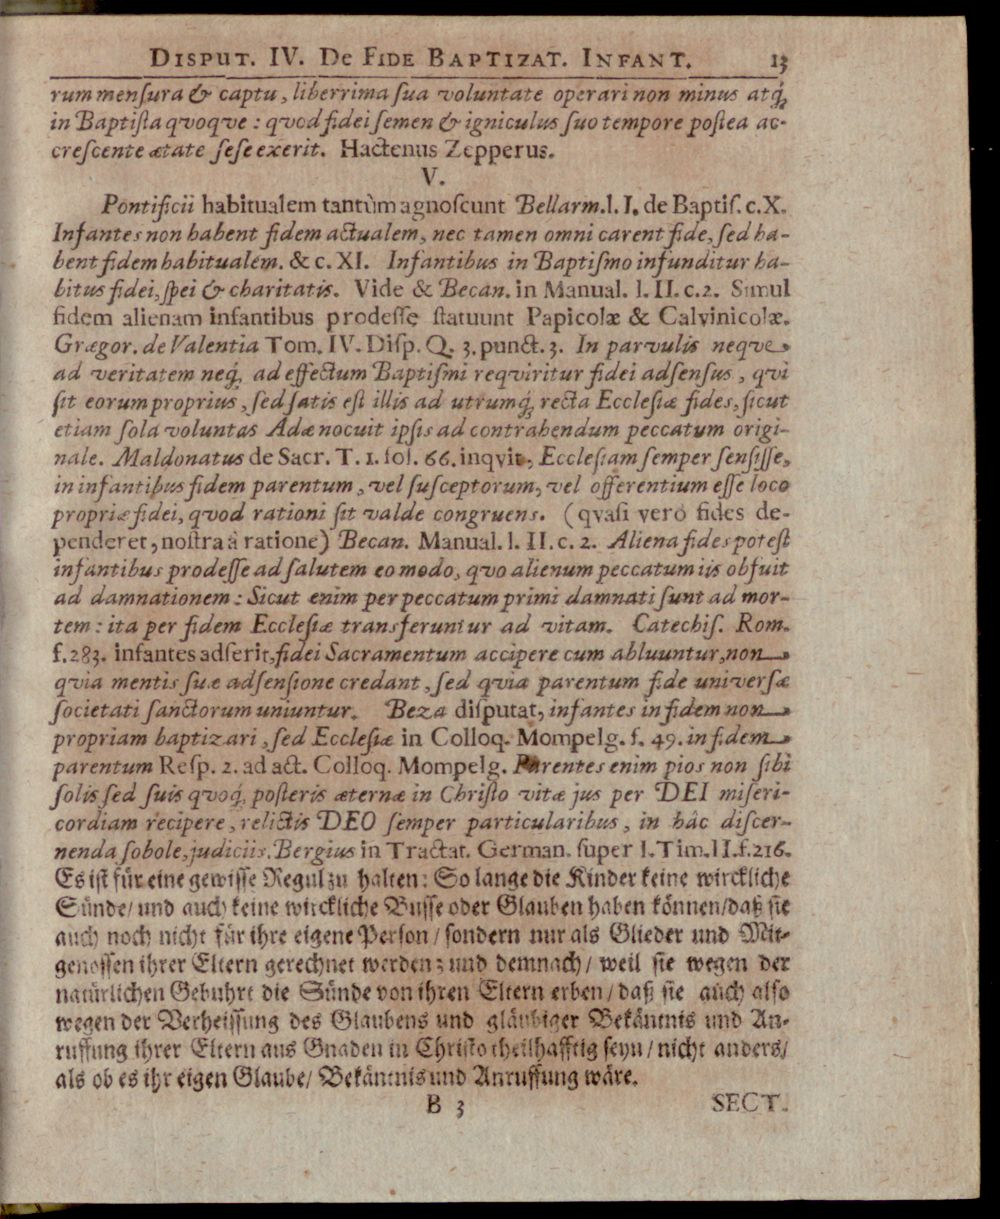 DISPUT. IV. De FIDE BAPTIZAT. INFANT. 13
rum mensura & captu, liberrima sua voluntate operari non minus atq́;
in Baptista qvoqve: qvod fidei semen & igniculus suo tempore postea ac-
crescente ætate sese exerit. Hactenus Zepperus.
V.
Pontificii habitualem tantùm agnoscunt Bellarm. l. I. de Baptis. c. X.
Infantes non habent fidem actualem, nec tamen omni carent fide, sed ha-
bent fidem habitualem. & c. XI. Infantibus in Baptismo infunditur ha-
bitus fidei, spei & charitatis. Vide & Becan. in Manual. l. II. c. 2. Simul
fidem alienam infantibus prodesse statuunt Papicolæ & Calvinicolæ.
Grægor. de Valentia Tom. IV. Disp. Q. 3. punct. 3. In parvulis neqve
ad veritatem neq́; ad effectum Baptismi reqviritur fidei adsensus, qvi
sit eorum proprius, sed satis est illis ad utrumq́; recta Ecclesiæ fides, sicut
etiam sola voluntas Adæ nocuit ipsis ad contrahendum peccatum origi-
nale. Maldonatus de Sacr. T. 1. fol. 66. inqvit, Ecclesiam semper sensisse,
in infantibus fidem parentum, vel susceptorum, vel offerentium esse loco
propriæ fidei, qvod rationi sit valde congruens. (qvasi verò fides de-
penderet, nostra à ratione) Becan. Manual. l. II. c. 2. Aliena fides potest
infantibus prodesse ad salutem eo modo, qvo alienum peccatum iis obfuit
ad damnationem: Sicut enim per peccatum primi damnati sunt ad mor-
tem: ita per fidem Ecclesiæ transferuntur ad vitam. Catechis. Rom.
f. 283. infantes adserit, fidei Sacramentum accipere cum abluuntur, non
qvia mentis suæ adsensione credant, sed qvia parentum fide universæ
societati sanctorum uniuntur. Beza disputat, infantes in fidem non
propriam baptizari, sed Ecclesiæ in Colloq. Mompelg. f. 49. in fidem
parentum Resp. 2. ad act. Colloq. Mompelg. Parentes enim pios non sibi
solis sed suis qvoq́; posteris æternæ in Christo vitæ jus per DEI miseri-
cordiam recipere, relictis DEO semper particularibus, in hâc discer-
nenda sobole, judiciis. Bergius in Tractat. German. super I. Tim. II. f. 216.
Es ist für eine gewisse Regul zu halten: So lange die Kinder keine wirckliche
Sünde/ und auch keine wirckliche Busse oder Glauben haben können/ daß sie
auch noch nicht für ihre eigene Person/ sondern nur als Glieder und Mit-
genossen ihrer Eltern gerechnet werden; und demnach/ weil sie wegen der
natürlichen Gebuhrt die Sünde von ihren Eltern erben/ daß sie auch also
wegen der Verheissung des Glaubens und gläubiger Bekäntnis und An-
ruffung ihrer Eltern aus Gnaden in Christo theilhafftig seyn/ nicht anders/
als ob es ihr eigen Glaube/ Bekäntnis und Anruffung wäre.
B 3 SECT.